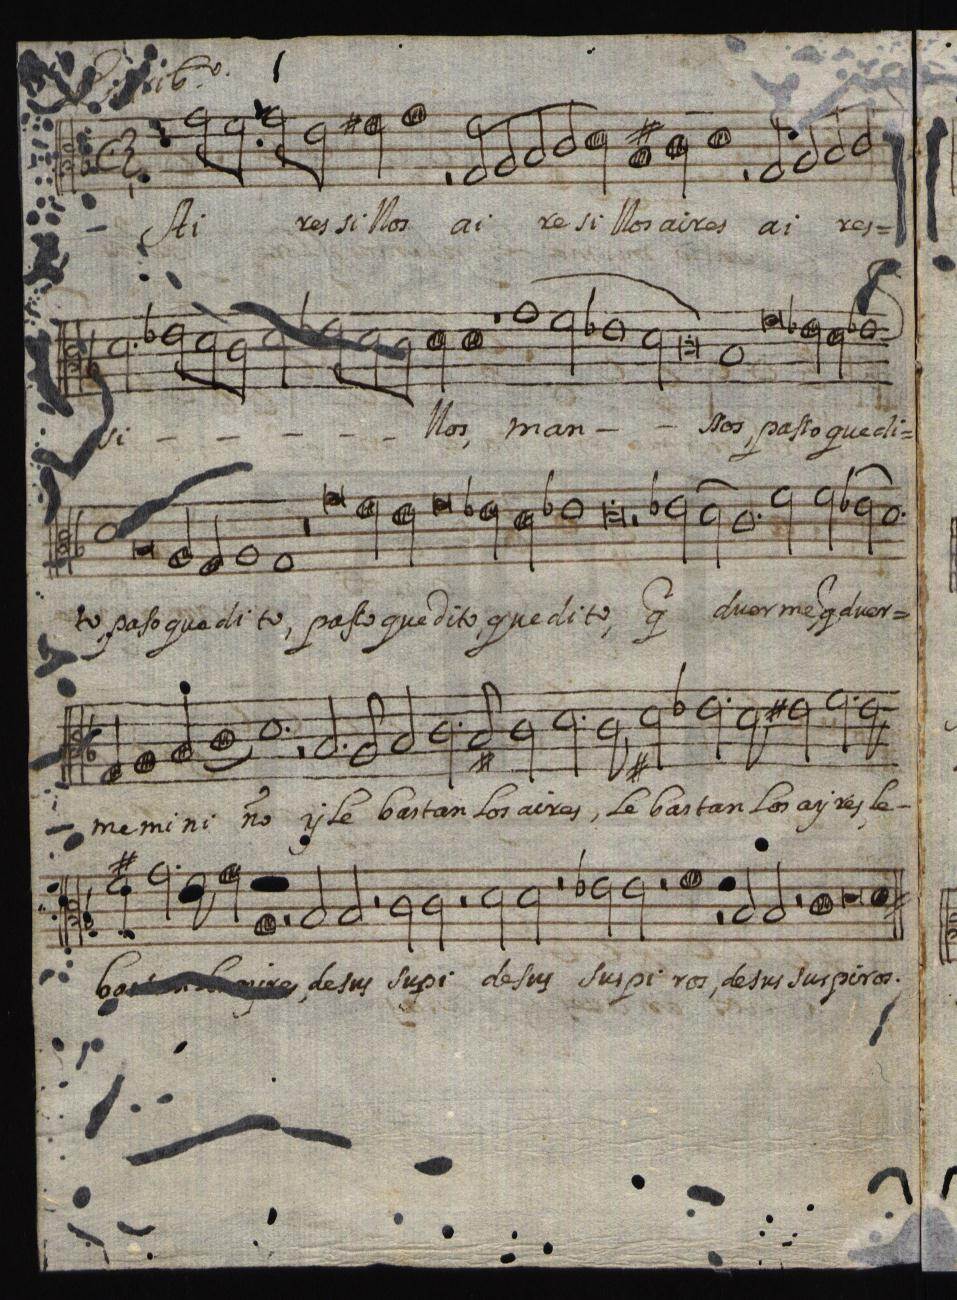 Ai ressillos ai resillos aires ai res=
si - - - - - - llos, man - - sos, passo que di=
to, paso que di to, passo que dito, que di to, q̃ duerme, q̃ duer=
me mi ni ño y le bastan los aires, le bastan los ayres, le -
aires, de sus supi de sus suspi ros, de sus suspiros.